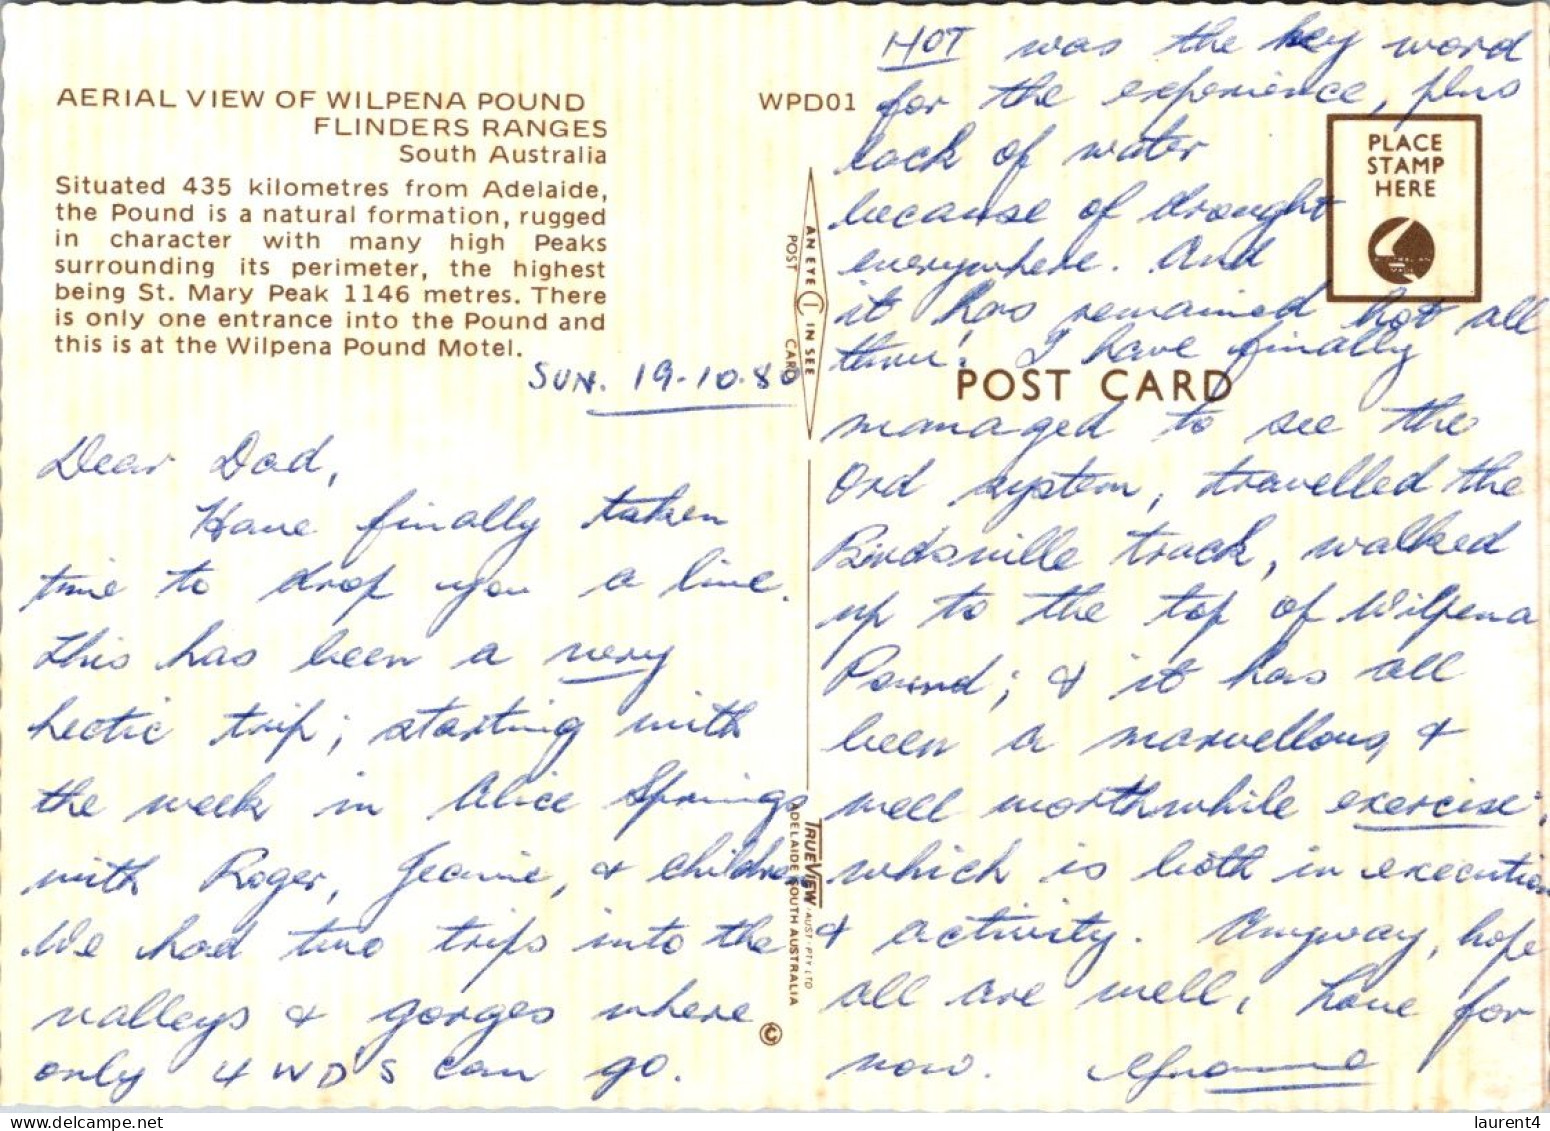 AERIAL VIEW OF WILPENA POUND
FLINDERS RANGES
South Australia
Situated 435 kilometres from Adelaide,
the Pound is a natural formation, rugged
in character with many high Peaks
surrounding its perimeter, the highest
being St. Mary Peak 1146 metres. There
is only one entrance into the Pound and
this is at the Wilpena Pound Motel.
SUN. 19-10-80
Dear Dad,
Have finally taken
time to drop you a line.
This has been a very
hectic trip; starting with
the week in Alice Springs
with Roger, Jeanie, & children
We had two trips into the
valleys & gorges where
only 4 WD'S can go.
WPD01
AN EYE IN SEE
POST CARD
TRUEVIEW AUST. PTY LTD
ADELAIDE SOUTH AUSTRALIA
©
HOT was the key word
for the experience, plus
lack of water
because of drought
everywhere. And
it has remained hot all
thru! I have finally
managed to see the
Ord system, travelled the
Birdsville track, walked
up to the top of Wilpena
Pound; & it has all
been a marvellous &
well worthwhile exercise,
which is both in execution
& activity. Anyway, hope
all are well, have for
now.
PLACE
STAMP
HERE
POST CARD
laurent4